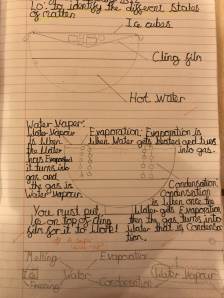 Lo: to identify the different states
of matter
Ice cubes
Cling film
Hot water
Water Vaper:
Water Vapour
is When
the Water
has Evaporated
it turns into
gas and
the gas is
Water Vapour.
Evaporation: Evaporation is
When Water gets heated and turns
into gas.
Condensation
Condensation
is when once the
Water gets Evaporated
then the gas turns into
Water that is Condensa
tion.
You must put
ice on top of cling
film for it to Work!
Melting
Evaporation
Ice
Water
Water Vapour
Freezing
Condensation